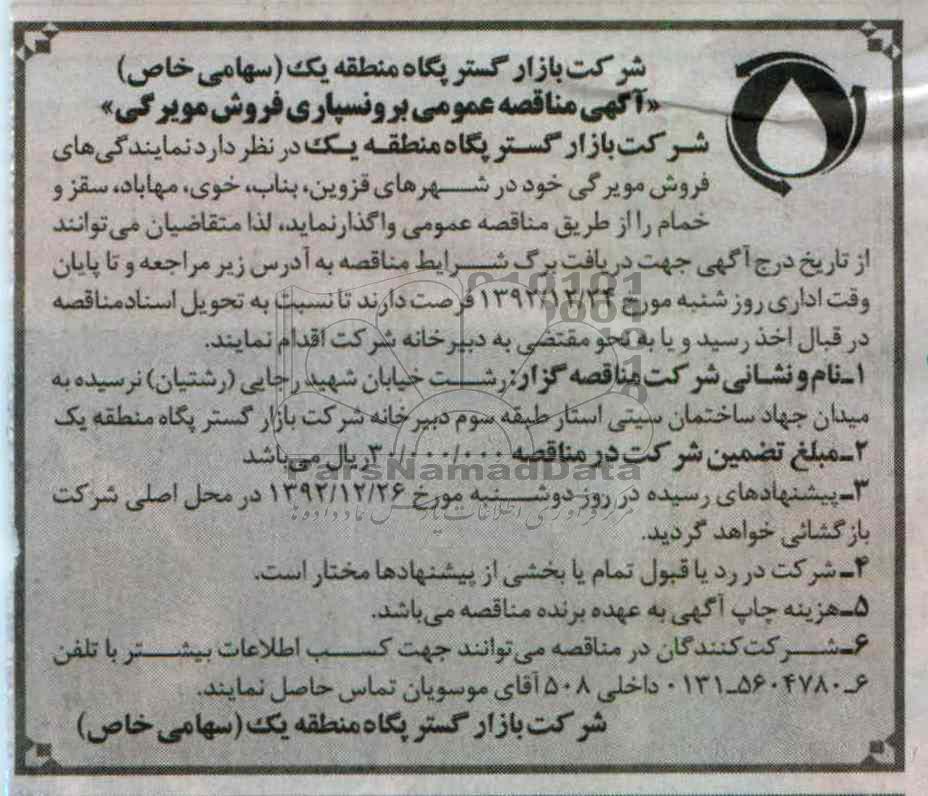 شرکت بازار گستر پگاه منطقه یک (سهامی خاص)
«آگهی مناقصه عمومی برونسپاری فروش مویرگی»
شرکت بازار گستر پگاه منطقه یک در نظر دارد نمایندگی‌های
فروش مویرگی خود در شهرهای قزوین، بناب، خوی، مهاباد، سقز و
خمام را از طریق مناقصه عمومی واگذار نماید، لذا متقاضیان می‌توانند
از تاریخ درج آگهی جهت دریافت برگ شرایط مناقصه به آدرس زیر مراجعه و تا پایان
وقت اداری روز شنبه مورخ ۱۳۹۲/۱۲/۲۴ فرصت دارند تا نسبت به تحویل اسناد مناقصه
در قبال اخذ رسید و یا به نحو مقتضی به دبیرخانه شرکت اقدام نمایند.
۱ـ نام و نشانی شرکت مناقصه گزار: رشت خیابان شهید رجایی (رشتیان) نرسیده به
میدان جهاد ساختمان سیتی استار طبقه سوم دبیرخانه شرکت بازار گستر پگاه منطقه یک
۲ـ مبلغ تضمین شرکت در مناقصه ۳۰/۰۰۰/۰۰۰ ریال می‌باشد
ParsNamadData
۳ـ پیشنهادهای رسیده در روز دوشنبه مورخ ۱۳۹۲/۱۲/۲۶ در محل اصلی شرکت
بازگشائی خواهد گردید.
۴ـ شرکت در رد یا قبول تمام یا بخشی از پیشنهادها مختار است.
۵ـ هزینه چاپ آگهی به عهده برنده مناقصه می‌باشد.
۶ـ شرکت‌کنندگان در مناقصه می‌توانند جهت کسب اطلاعات بیشتر با تلفن
۶ـ۰۱۳۱ـ۵۶۰۴۷۸۰ داخلی ۵۰۸ آقای موسویان تماس حاصل نمایند.
شرکت بازار گستر پگاه منطقه یک (سهامی خاص)